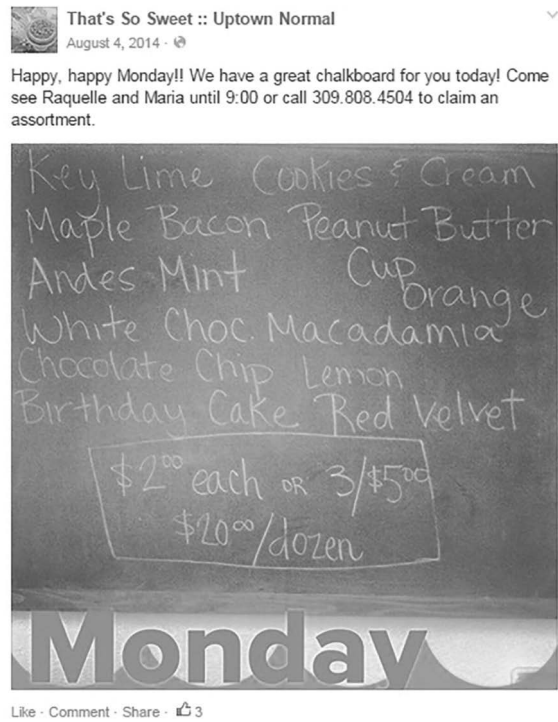 That's So Sweet :: Uptown Normal
August 4, 2014 ·
Happy, happy Monday!! We have a great chalkboard for you today! Come
see Raquelle and Maria until 9:00 or call 309.808.4504 to claim an
assortment.
Key Lime Cookies & Cream
Maple Bacon Peanut Butter
Andes Mint Cup
Orange
White Choc. Macadamia
Chocolate Chip Lemon
Birthday Cake Red Velvet
$2⁰⁰ each OR 3/$5⁰⁰
$20⁰⁰/dozen
Monday
Like · Comment · Share · 3